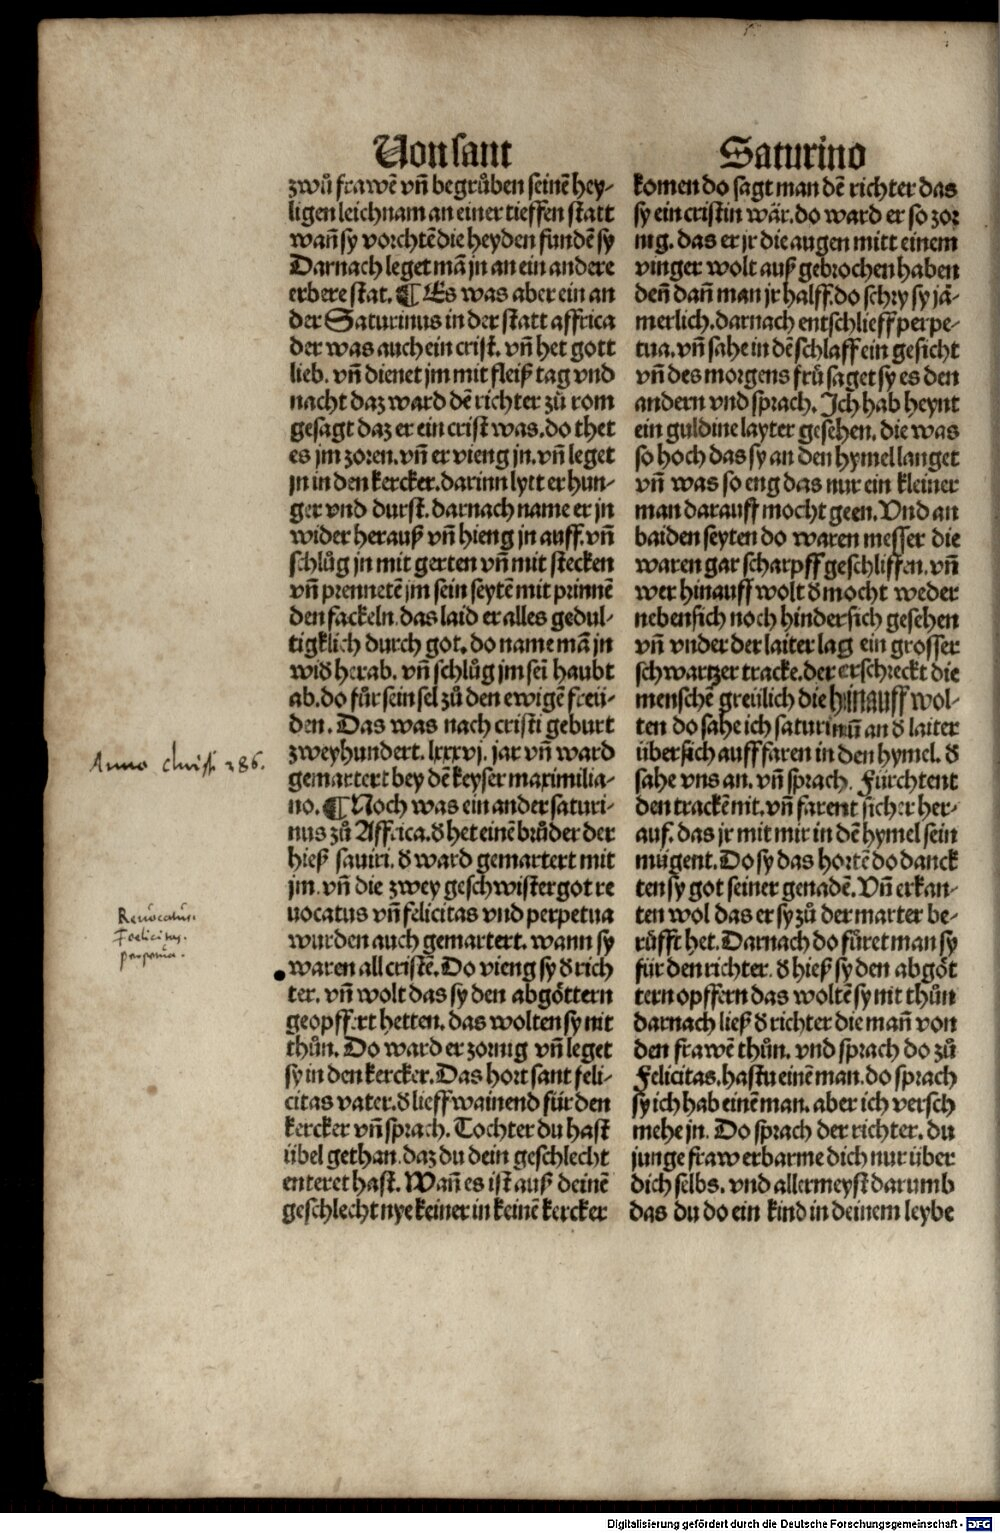 Von sant
zwů frawē vñ begrůben seinē hey-
ligen leichnam an einer tieffen statt
wañ sy vorchtē die heyden fundē sy
Darnach leget mā jn an ein andere
erbere stat. ¶ Es was aber ein an
der Saturinus in der statt affrica
der was auch ein crist. vñ het gott
lieb. vñ dienet jm mit fleiß tag vnd
nacht daz ward dē richter zů rom
gesagt daz er ein crist was. do thet
es jm zoren. vñ er vieng jn. vñ leget
jn in den kercker. darinn lytt er hun-
ger vnd durst. darnach name er jn
wider herauß vñ hieng jn auff. vñ
schlůg jn mit gerten vñ mit stecken
vñ prennetē jm sein seytē mit prinnē
den fackeln. das laid er alles gedul-
tigklich durch got. do name mā jn
wid herab. vñ schlůg jm sei haubt
ab. do fůr sein sel zů den ewigē freü-
den. Das was nach cristi geburt
zweyhundert. lxxxvj. jar vñ ward
gemartert bey dē keyser maximilia-
no. ¶ Noch was ein ander saturi-
nus zů Affrica. d het einē brůder der
hieß sauiri. d ward gemartert mit
jm. vñ die zwey geschwistergot re
uocatus vñ felicitas vnd perpetua
wurden auch gemartert. wann sy
waren all cristē. Do vieng sy d rich
ter. vñ wolt das sy den abgöttern
geopffert hetten. das wolten sy nit
thůn. Do ward er zornig vñ leget
sy in den kercker. Das hort sant feli-
citas vater. d lieff wainend für den
kercker vñ sprach. Tochter du hast
übel gethan. daz du dein geschlecht
enteret hast. Wañ es ist auß deinē
geschlecht nye keiner in keinē kercker
Anno christi 286.
Revocatus.
Foelicitas.
perpetua.
Saturino
komen do sagt man dē richter das
sy ein cristin wär. do ward er so zor
nig. das er jr die augen mitt einem
vinger wolt auß gebrochen haben
deñ dañ man jr halff. do schry sy jä-
merlich. darnach entschlieff perpe-
tua. vñ sahe in dē schlaff ein gesicht
vñ des morgens frů saget sy es den
andern vnd sprach. Ich hab heynt
ein guldine layter gesehen. die was
so hoch das sy an den hymel langet
vñ was so eng das nur ein kleiner
man darauff mocht geen. Vnd an
baiden seyten do waren messer die
waren gar scharpff geschliffen. vñ
wer hinauff wolt d mocht weder
nebensich noch hindersich gesehen
vñ vnder der laiter lag ein grosser
schwartzer tracke. der erschreckt die
menschē greülich die hinauff wol-
ten do sahe ich saturinū an d laiter
übersich auff faren in den hymel. d
sahe vns an. vñ sprach. Fürchtent
den trackē nit. vñ farent sicher her-
auf. das jr mit mir in dē hymel sein
mügent. Do sy das hortē do danck
ten sy got seiner genadē. Vñ erkan-
ten wol das er sy zů der marter be-
růfft het. Darnach do fůret man sy
für den richter. d hieß sy den abgöt
tern opffern das woltē sy nit thůn
darnach ließ d richter die mañ von
den frawē thůn. vnd sprach do zů
Felicitas. hastu einē man. do sprach
sy ich hab einē man. aber ich versch
mehe jn. Do sprach der richter. du
junge fraw erbarme dich nur über
dich selbs. vnd allermeyst darumb
das du do ein kind in deinem leybe
Digitalisierung gefördert durch die Deutsche Forschungsgemeinschaft - DFG